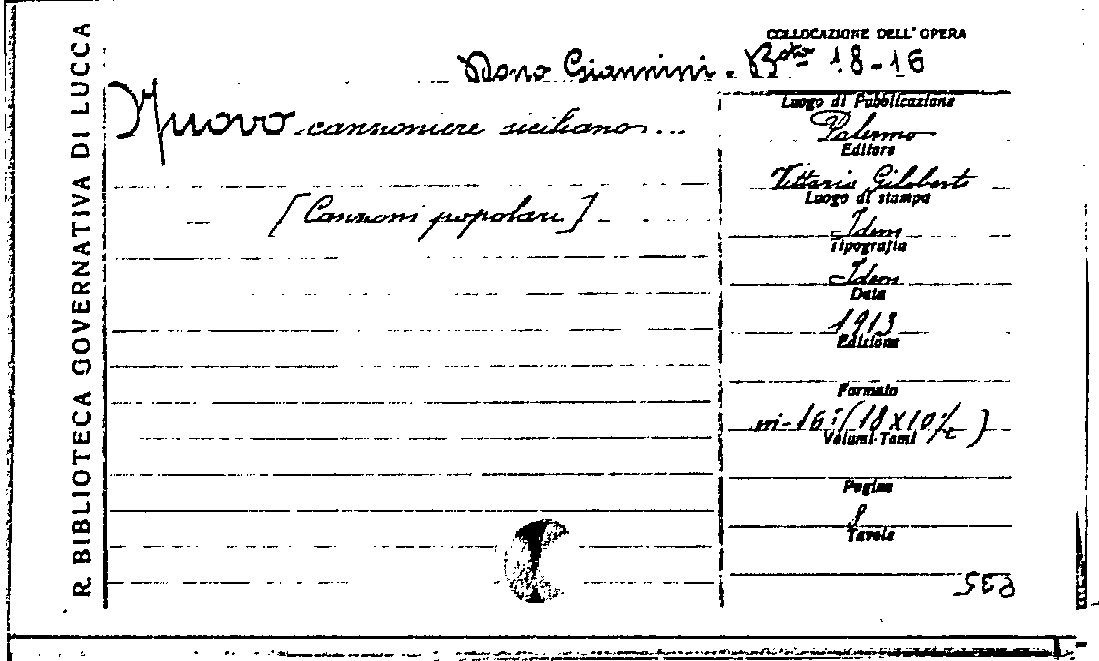 R. BIBLIOTECA GOVERNATIVA DI LUCCA
COLLOCAZIONE DELL'OPERA
Dono Giannini. Bta 18-16
Nuovo canzoniere siciliano...
[Canzoni popolari]
Luogo di Pubblicazione
Palermo
Editore
Vittorio Giliberti
Luogo di stampa
Idem
Tipografia
Idem
Data
1913
Edizione
Formato
in-16º (18 X 10 /c)
Volumi-Tomi
Pagine
8
Tavole